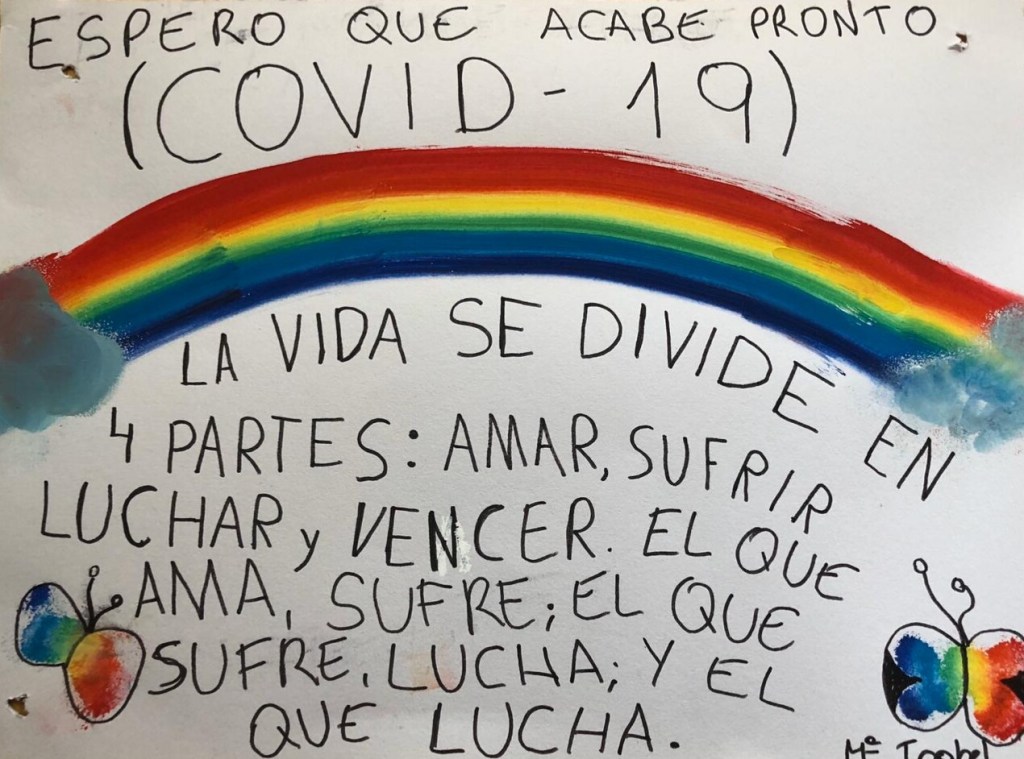 ESPERO QUE ACABE PRONTO
(COVID-19)
LA VIDA SE DIVIDE EN
4 PARTES: AMAR, SUFRIR
LUCHAR y VENCER. EL QUE
AMA, SUFRE; EL QUE
SUFRE, LUCHA; Y EL
QUE LUCHA.
Mª